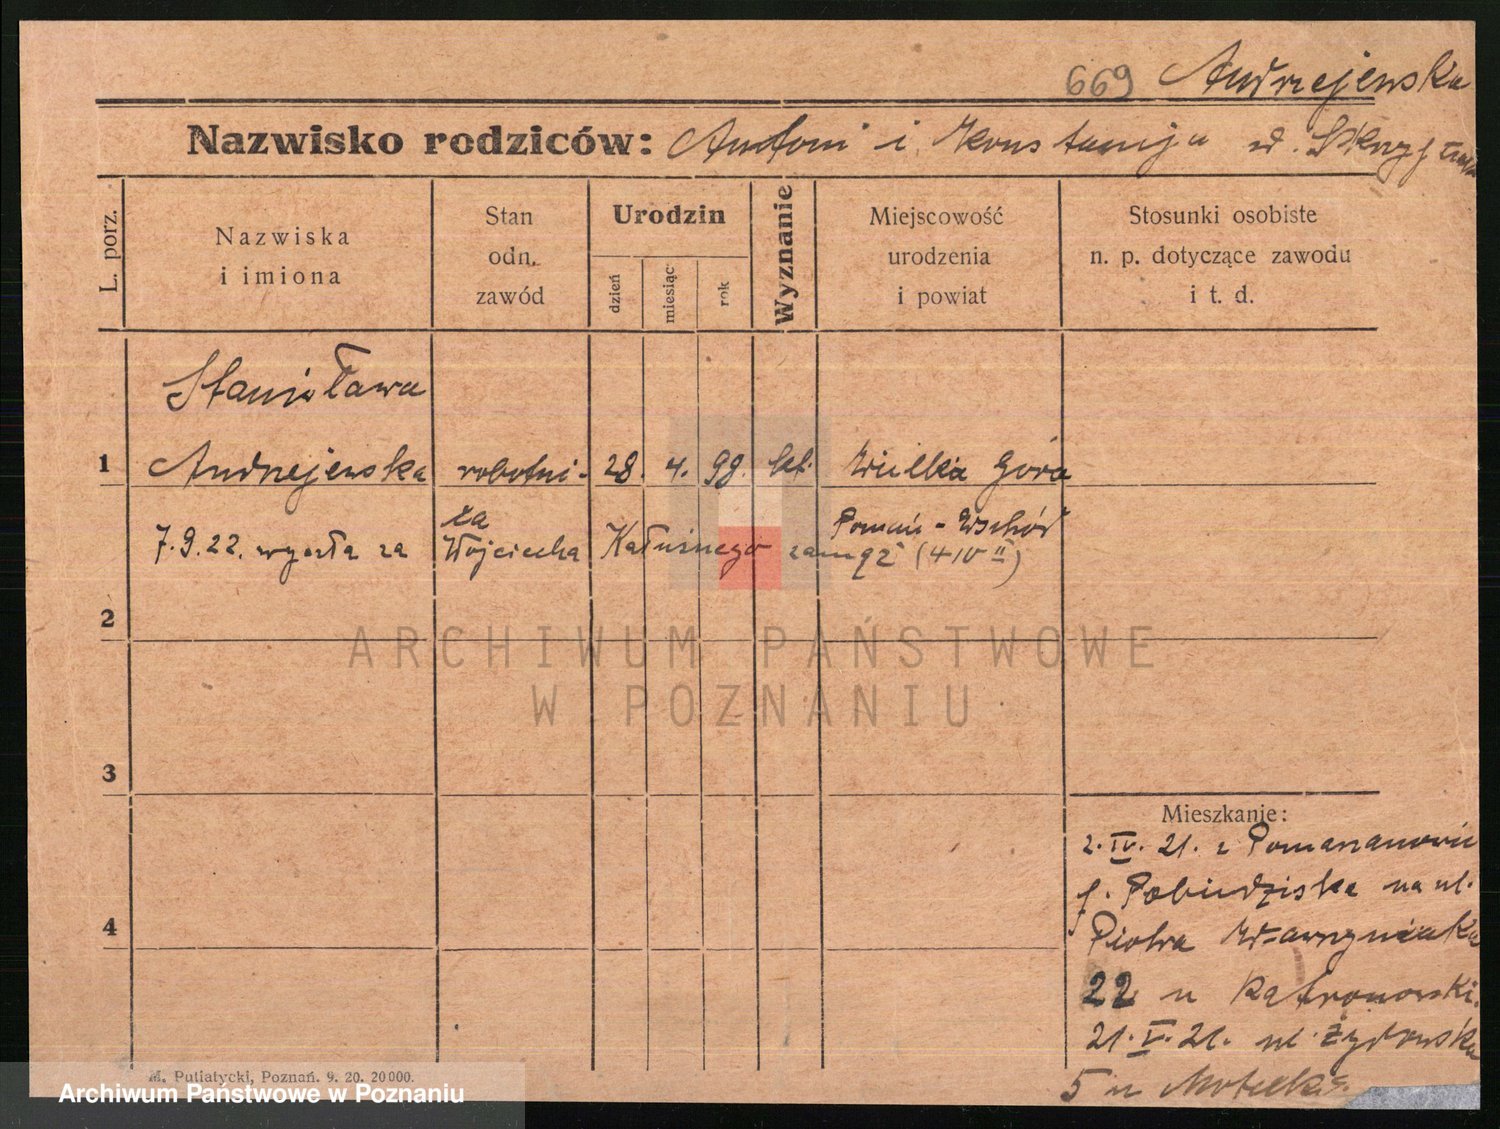 669 Andrzejewska
Nazwisko rodziców: Antoni i Konstancja z d.
L. porz.
Nazwiska
i imiona
Stan
odn.
zawód
Urodzin
dzień
miesiąc
rok
Wyznanie
Miejscowość
urodzenia
i powiat
Stosunki osobiste
n. p. dotyczące zawodu
i t. d.
Stanisława
1 Andrzejewska robotni- 28. 4. 98. kat. Wielka Góra
ca Poznań - Wschód
7.9.22. wyszła za Wojciecha Kałużnego zamąż (410 II)
2
ARCHIWUM PAŃSTWOWE
W POZNANIU
3
Mieszkanie:
2. IV. 21. z Pomarzanowic
p. Pobiedziska na ul.
4 Piotra Wawrzyniaka
22 u Katronowski.
21. V. 21. ul. Żydowska
5 u
M. Putiatycki, Poznań. 9. 20. 20000.
Archiwum Państwowe w Poznaniu